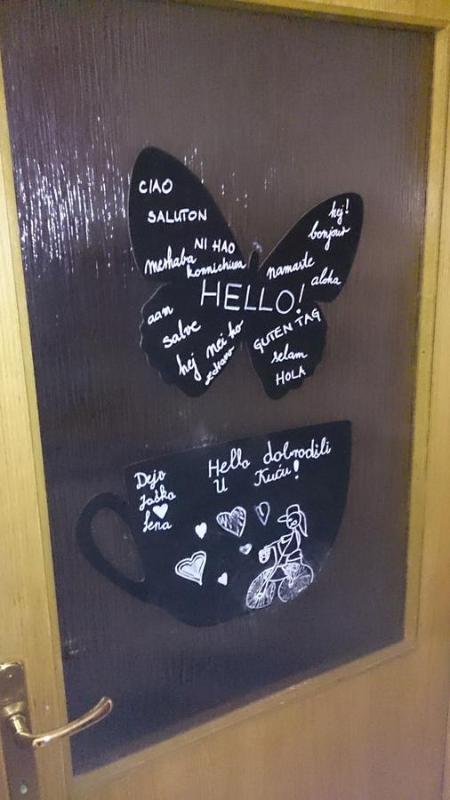 CIAO
SALUTON
NI HAO
merhaba
konnichiwa
HELLO!
aan
salve
hej nei ho
zdravo
hej!
bonjour
namaste
aloha
GUTEN TAG
selam
HOLA
Dejo
Jaško
Lena
Hello dobrodišli
U Kuću!